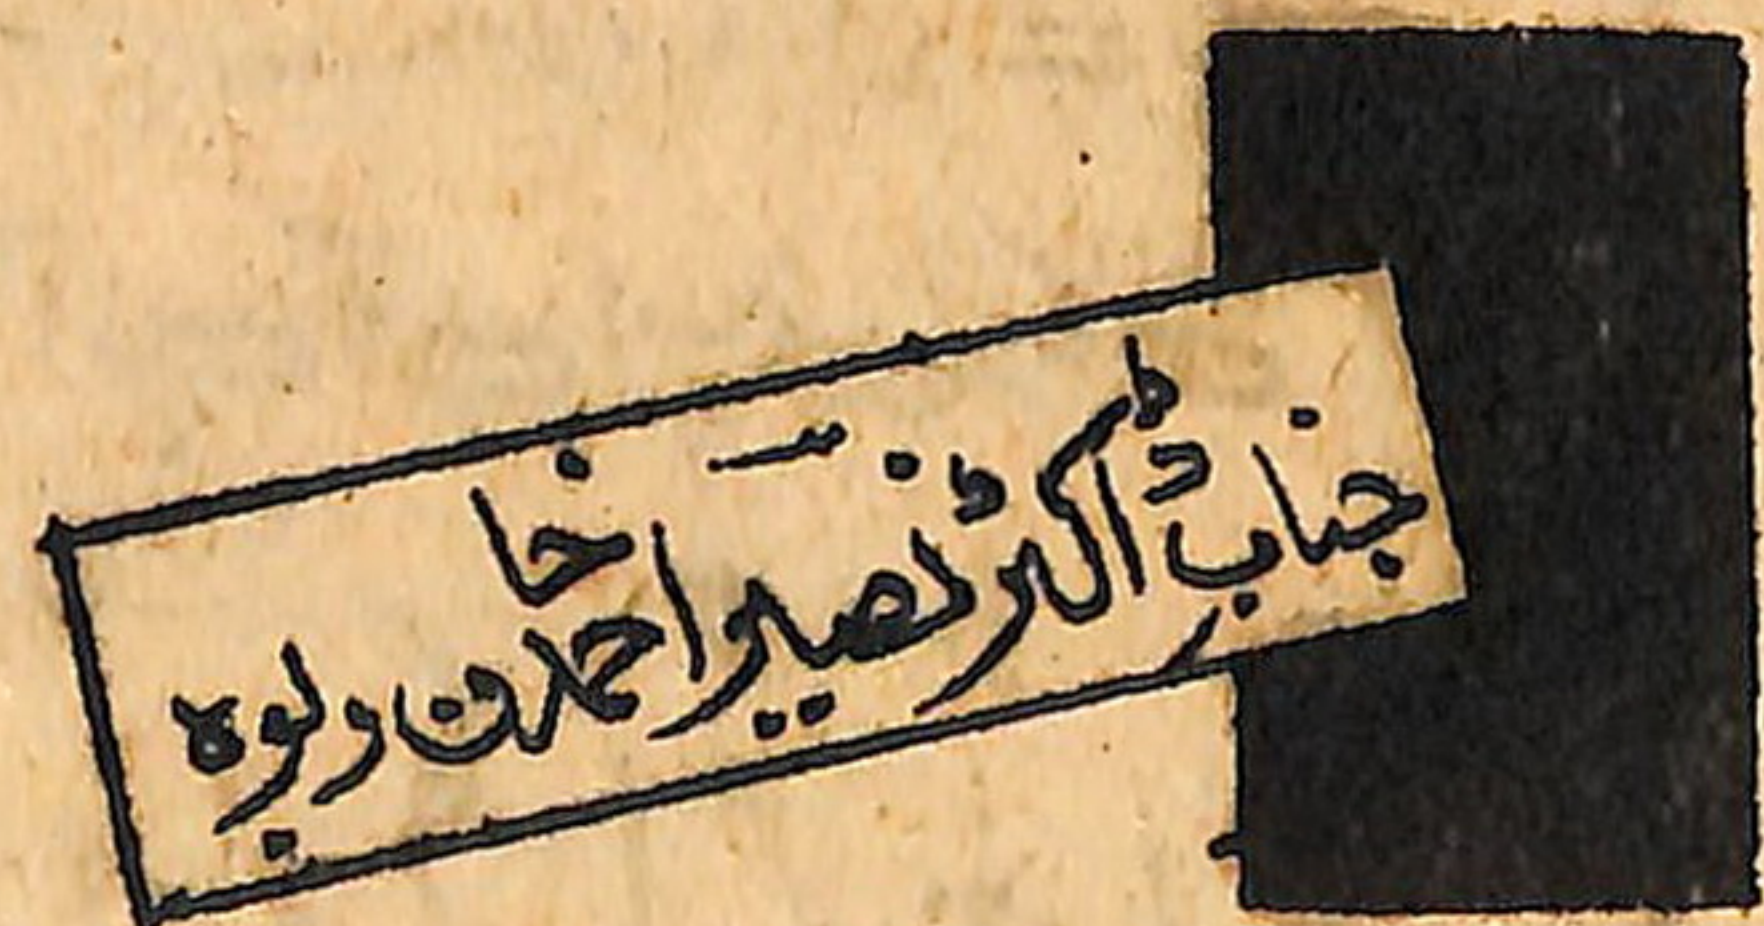 جناب ڈاکٹر نصیر احمد خان ربوہ